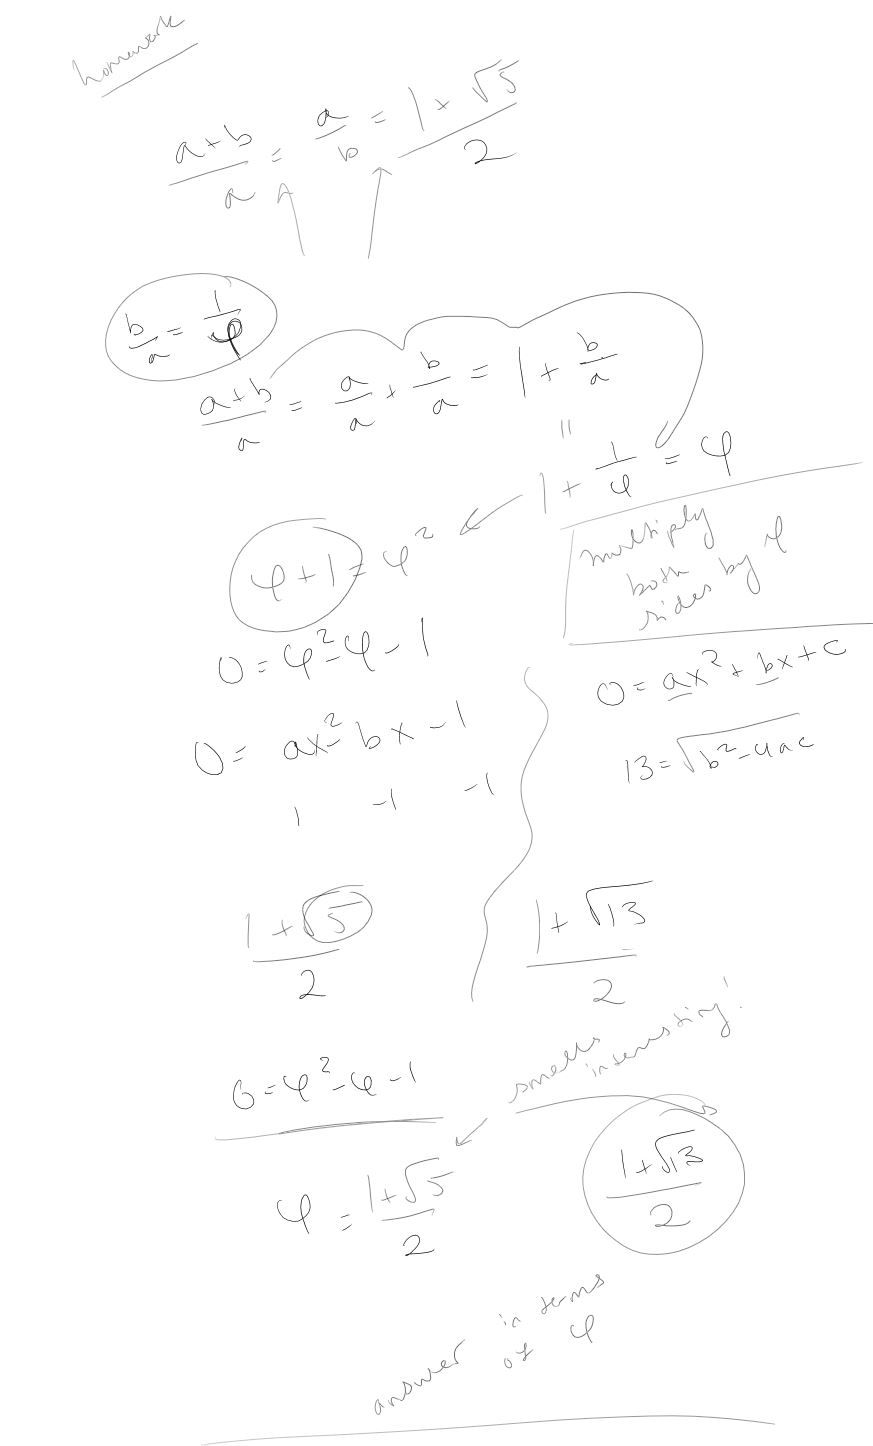 homework
a+b/a = a/b = 1+√5/2
b/a = 1/φ
a+b/a = a/a + b/a = 1 + b/a
"
1 + 1/φ = φ
φ+1 = φ²
multiply
both
sides by φ
0 = φ²-φ-1
0 = ax²-bx-1
1 -1 -1
0 = ax²+bx+c
13=√b²-4ac
1+√5/2
1+√13/2
smells
interesting!
0=φ²-φ-1
φ = 1+√5/2
1+√13/2
answer in terms
of φ